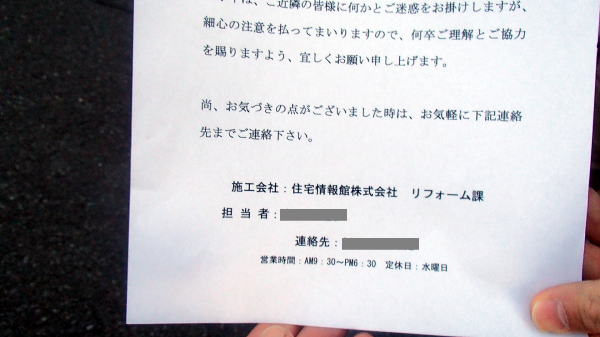 は、ご近隣の皆様に何かとご迷惑をお掛けしますが、
細心の注意を払ってまいりますので、何卒ご理解とご協力
を賜りますよう、宜しくお願い申し上げます。
尚、お気づきの点がございました時は、お気軽に下記連絡
先までご連絡下さい。
施工会社：住宅情報館株式会社　リフォーム課
担 当 者：
連絡先：
営業時間：AM9：30～PM6：30　定休日：水曜日